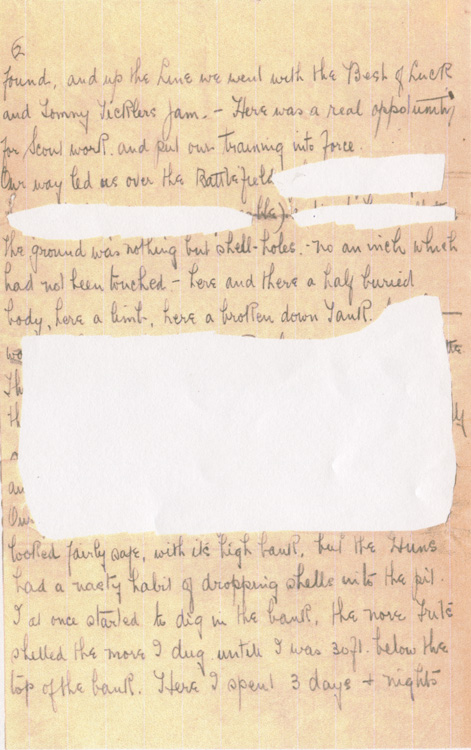 6
found, and up the Line we went with the Best of Luck
and Tommy Ticklers Jam. – Here was a real oppotunity
for Scout work. and put our training into force.
Our way led us over the Battlefield
the ground was nothing but shell-holes. – no an inch which
had not been touched – here and there a half buried
body, here a limb, here a broken down Tank.
the
Th
an
Our
looked fairly safe, with its high bank, but the Huns
had a nasty habit of dropping shells into the pit.
I at once started to dig in the bank, the more Fritz
shelled the more I dug until I was 30ft. below the
top of the bank. Here I spent 3 days + nights